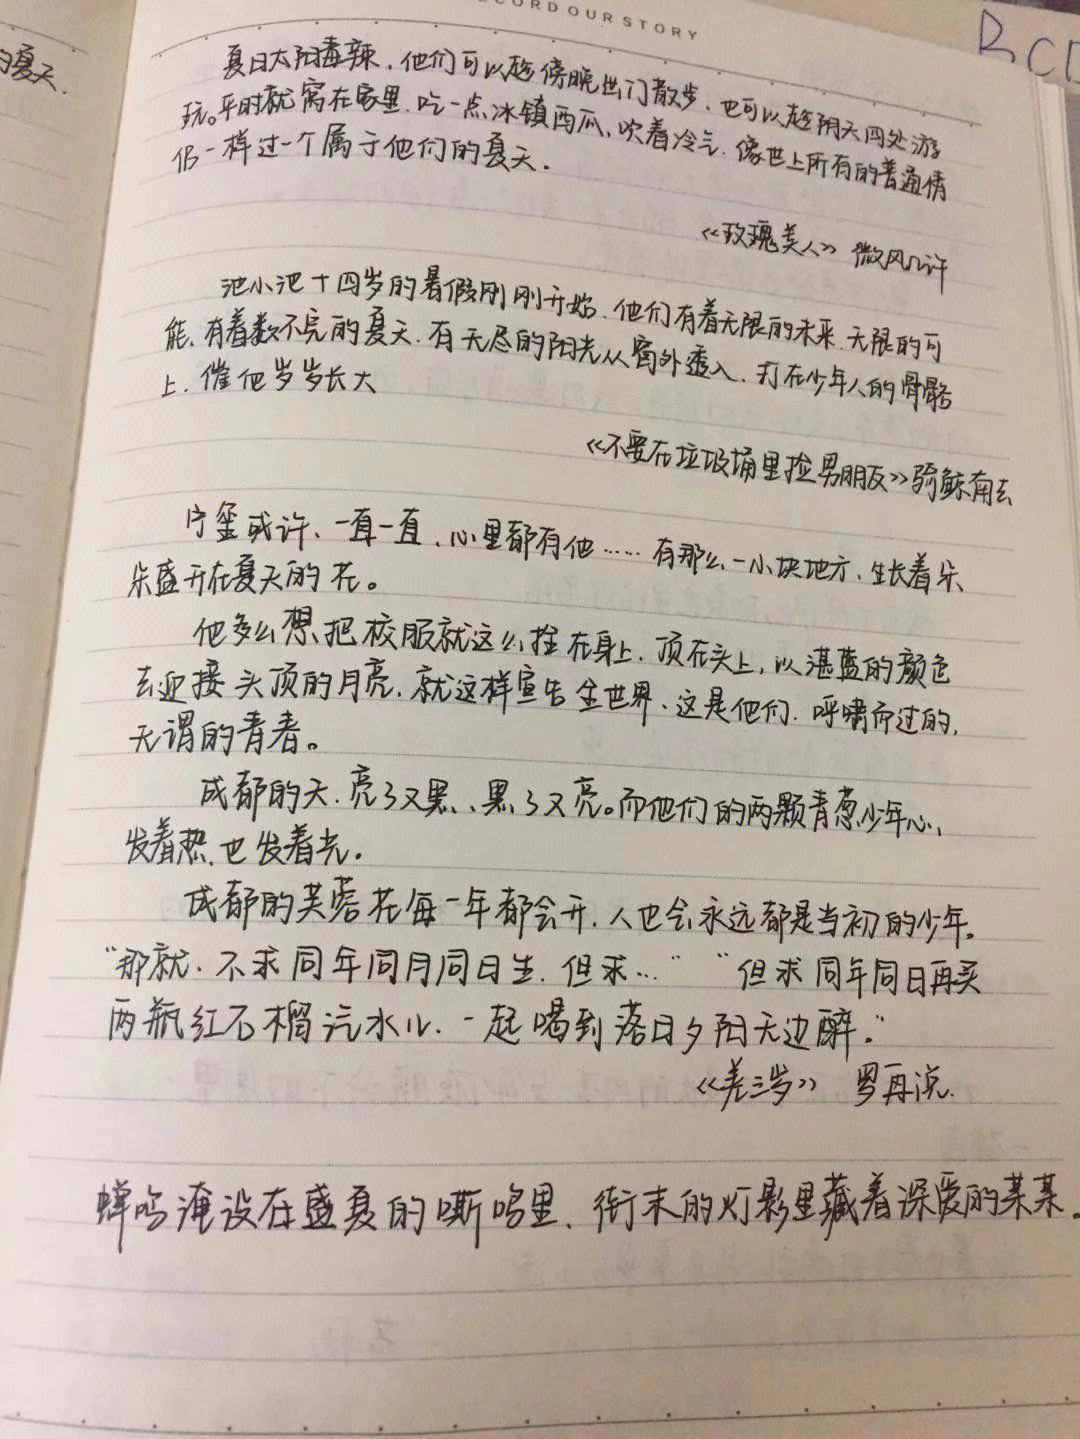 RECORD OUR STORY
的夏天.
夏日太阳毒辣,他们可以趁傍晚出门散步,也可以趁阴天四处游
玩。平时就窝在家里,吃一点冰镇西瓜、吹着冷气,像世上所有的普通情
侣一样过一个属于他们的夏天.
《玫瑰美人》 微风几许
池小池十四岁的暑假刚刚开始.他们有着无限的未来.无限的可
能,有着数不完的夏天.有无尽的阳光从窗外透入,打在少年人的骨骼
上,催他岁岁长大
《不要在垃圾桶里捡男朋友》骑鲸南去
宁玺或许、一直一直,心里都有他……有那么一小块地方、生长着朵
朵盛开在夏天的花。
他多么想把校服就这么拴在身上.顶在头上,以湛蓝的颜色
去迎接头顶的月亮.就这样宣告全世界、这是他们.呼啸而过的,
无谓的青春。
成都的天.亮了又黑、黑了又亮。而他们的两颗青葱少年心,
发着热,也发着光.
成都的芙蓉花每一年都会开.人也会永远都是当初的少年。
"那就.不求同年同月同日生.但求…" "但求同年同日再买
两瓶红石榴汽水儿.一起喝到落日夕阳无边醉."
《差三岁》 罗再说.
蝉鸣淹没在盛夏的嘶鸣里、街末的灯影里藏着深爱的某某.